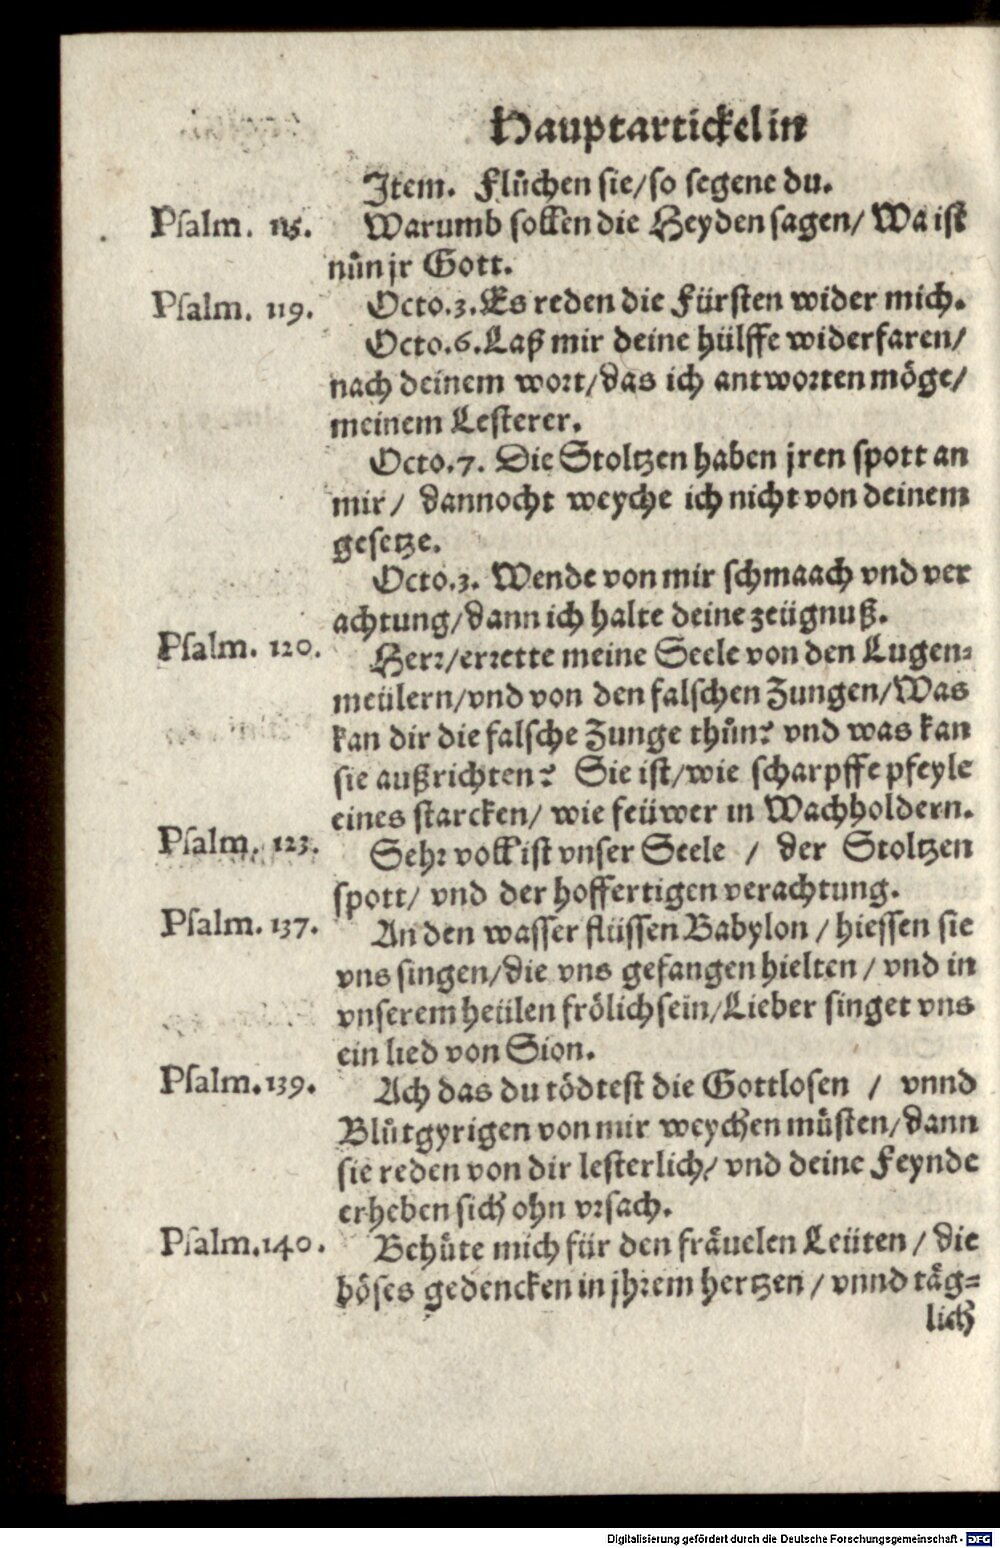 Hauptartickel in
Item. Flůchen sie/so segene du.
Psalm. 115. Warumb sollen die Heyden sagen/ Wa ist
nůn jr Gott.
Psalm. 119. Octo.3. Es reden die Fürsten wider mich.
Octo.6. Laß mir deine hülffe widerfaren/
nach deinem wort/das ich antworten möge/
meinem Lesterer.
Octo.7. Die Stoltzen haben jren spott an
mir/ dannocht weyche ich nicht von deinem
gesetze.
Octo.3. Wende von mir schmaach vnd ver
achtung/dann ich halte deine zeügnuß.
Psalm. 120. Herr/errette meine Seele von den Lugen-
meülern/vnd von den falschen Zungen/Was
kan dir die falsche Zunge thůn? vnd was kan
sie außrichten? Sie ist/wie scharpffe pfeyle
eines starcken/ wie feüwer in Wachholdern.
Psalm. 123. Sehr voll ist vnser Seele / der Stoltzen
spott/ vnd der hoffertigen verachtung.
Psalm. 137. An den wasser flüssen Babylon / hiessen sie
vns singen/die vns gefangen hielten / vnd in
vnserem heülen frölich sein/Lieber singet vns
ein lied von Sion.
Psalm. 139. Ach das du tödtest die Gottlosen / vnnd
Blůtgyrigen von mir weychen můsten/dann
sie reden von dir lesterlich/ vnd deine Feynde
erheben sich ohn vrsach.
Psalm. 140. Behůte mich für den fräuelen Leüten / die
böses gedencken in jhrem hertzen / vnnd täg-
lich
Digitalisierung gefördert durch die Deutsche Forschungsgemeinschaft - DFG